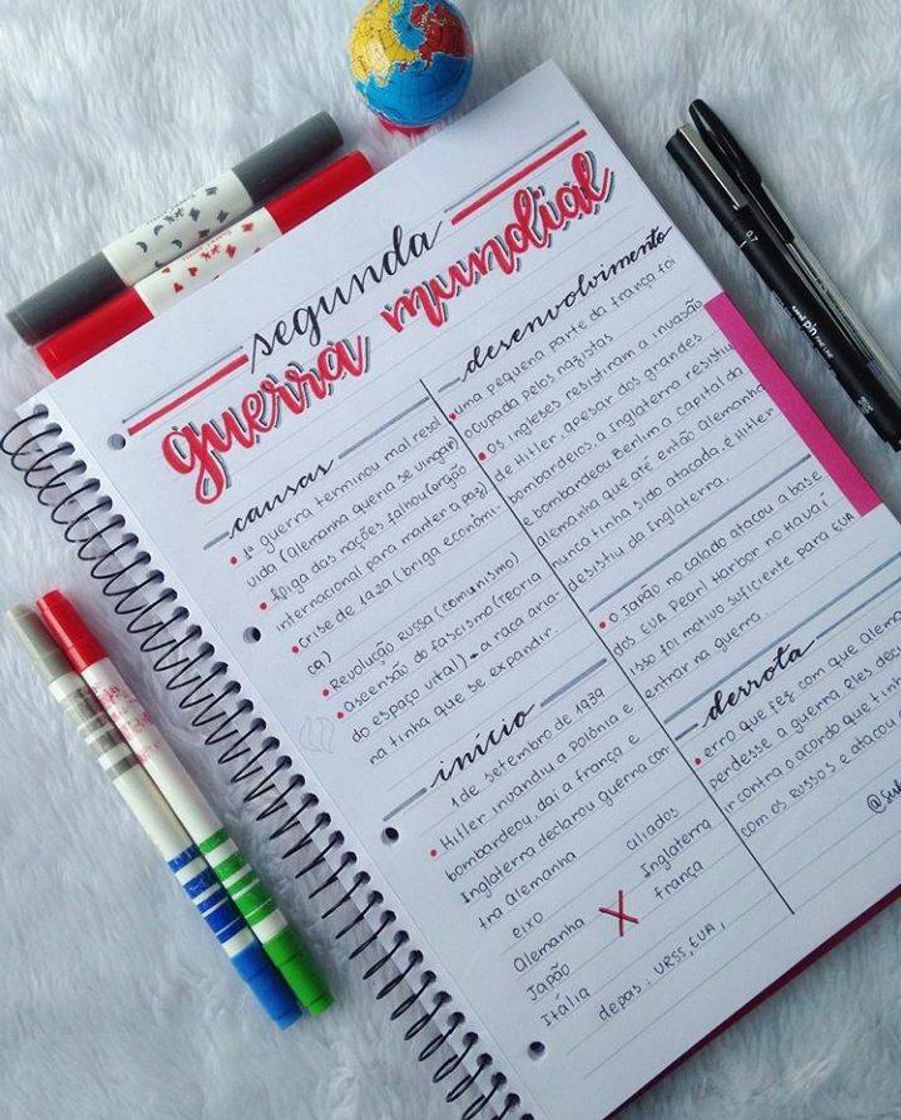 segunda
guerra mundial
causas
1ª guerra terminou mal resol
vida (alemanha queria se vingar)
liga das nações falhou (orgão
internacional para manter a paz)
crise de 1929 (briga econômi-
ca)
Revolução Russa (comunismo)
ascensão do fascismo (teoria
do espaço vital) → a raça aria-
na tinha que se expandir.
início
1 de setembro de 1939
Hitler invandiu a Polônia e
bombardeou, daí a frança e
Inglaterra declarou guerra con-
tra alemanha
eixo
aliados
Alemanha X Inglaterra
Japão
frança
Itália
depois: URSS, EUA,
desenvolvimento
uma pequena parte da frança foi
ocupada pelos nazistas
os ingleses resistiram a invasão
de Hitler, apesar dos grandes
bombardeios, a Inglaterra resistiu
e bombardeou Berlim a capital da
alemanha que até então alemanha
nunca tinha sido atacada, e Hitler
desistiu da Inglaterra.
o Japão no calado atacou a base
dos EUA Pearl Harbor no Havaí
isso foi motivo suficiente para EUA
entrar na guerra.
derrota
erro que fez com que
perdesse a guerra eles
ir contra o acordo que
com os Russos e atacou
uni pin
FINE LINE
0.7